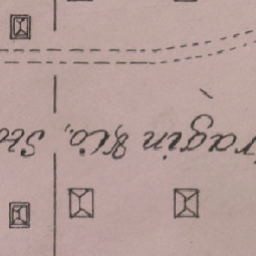 ragin & Co., Sto